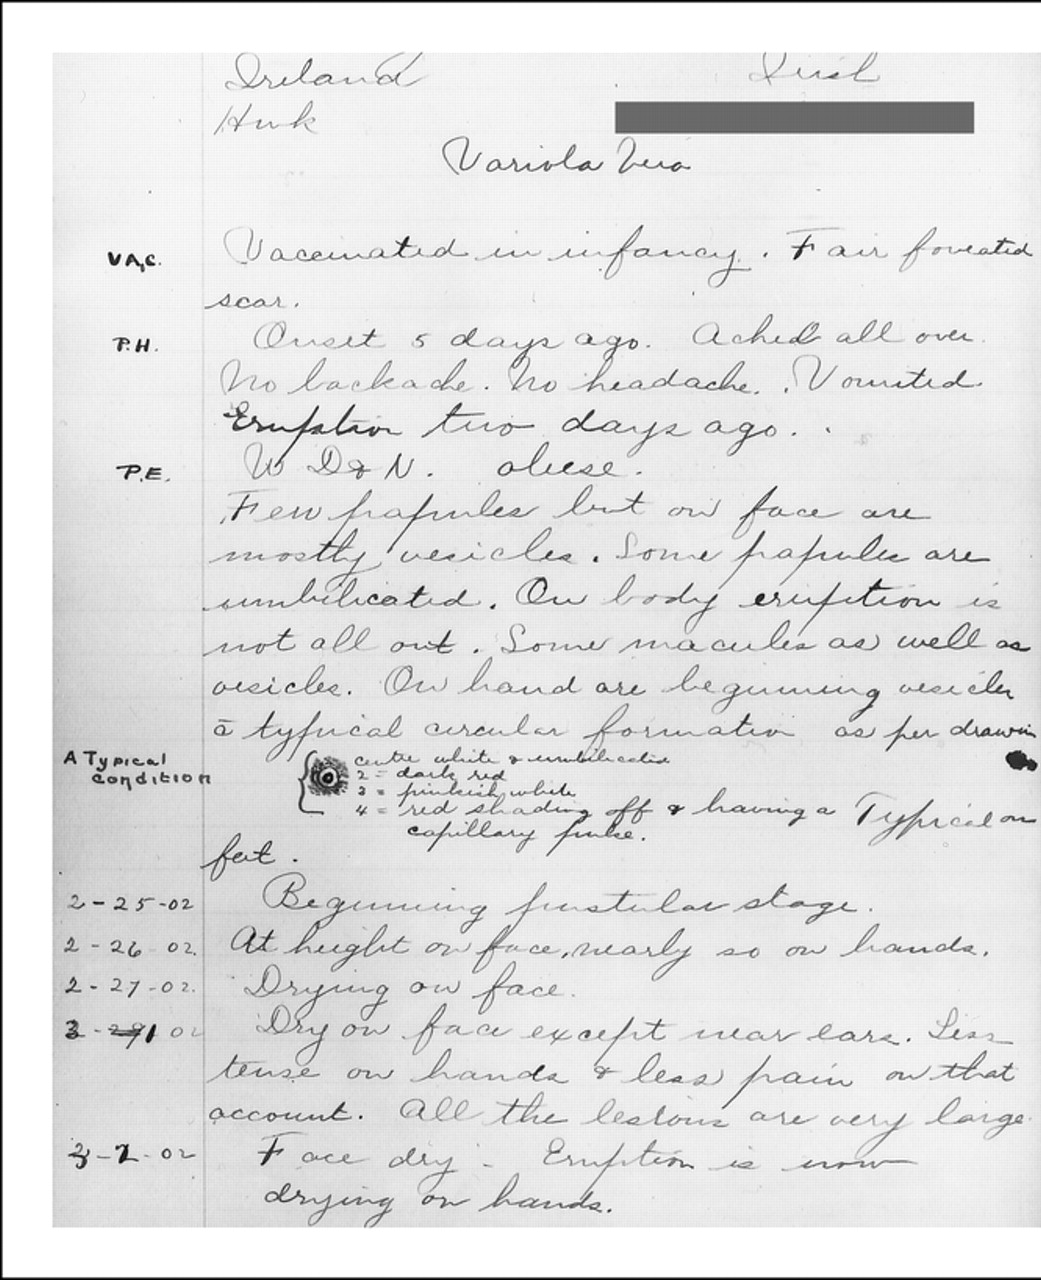 Ireland Irish
Hwk
Variola Vera
VAC. Vaccinated in infancy. Fair foveated
scar.
P.H. Onset 5 days ago. Ached all over.
No backache. No headache. Vomited
Eruption two days ago.
P.E. W D & N. obese.
Few papules but on face are
mostly vesicles. Some papules are
umbilicated. On body eruption is
not all out. Some macules as well as
vesicles. On hand are beginning vesicles
c̄ typical circular formation as per drawin
A Typical
condition
centre white & umbilicated
2 = dark red
3 = pinkish white
4 = red shading off & having a Typical on
capillary pulse.
feet.
2-25-02 Beginning pustular stage.
2-26-02. At height on face, nearly so on hands.
2-27-02. Drying on face.
3-1 02 Dry on face except near ears. Less
tense on hands & less pain on that
account. All the lesions are very large.
3-2-02 Face dry - Eruption is now
drying on hands.